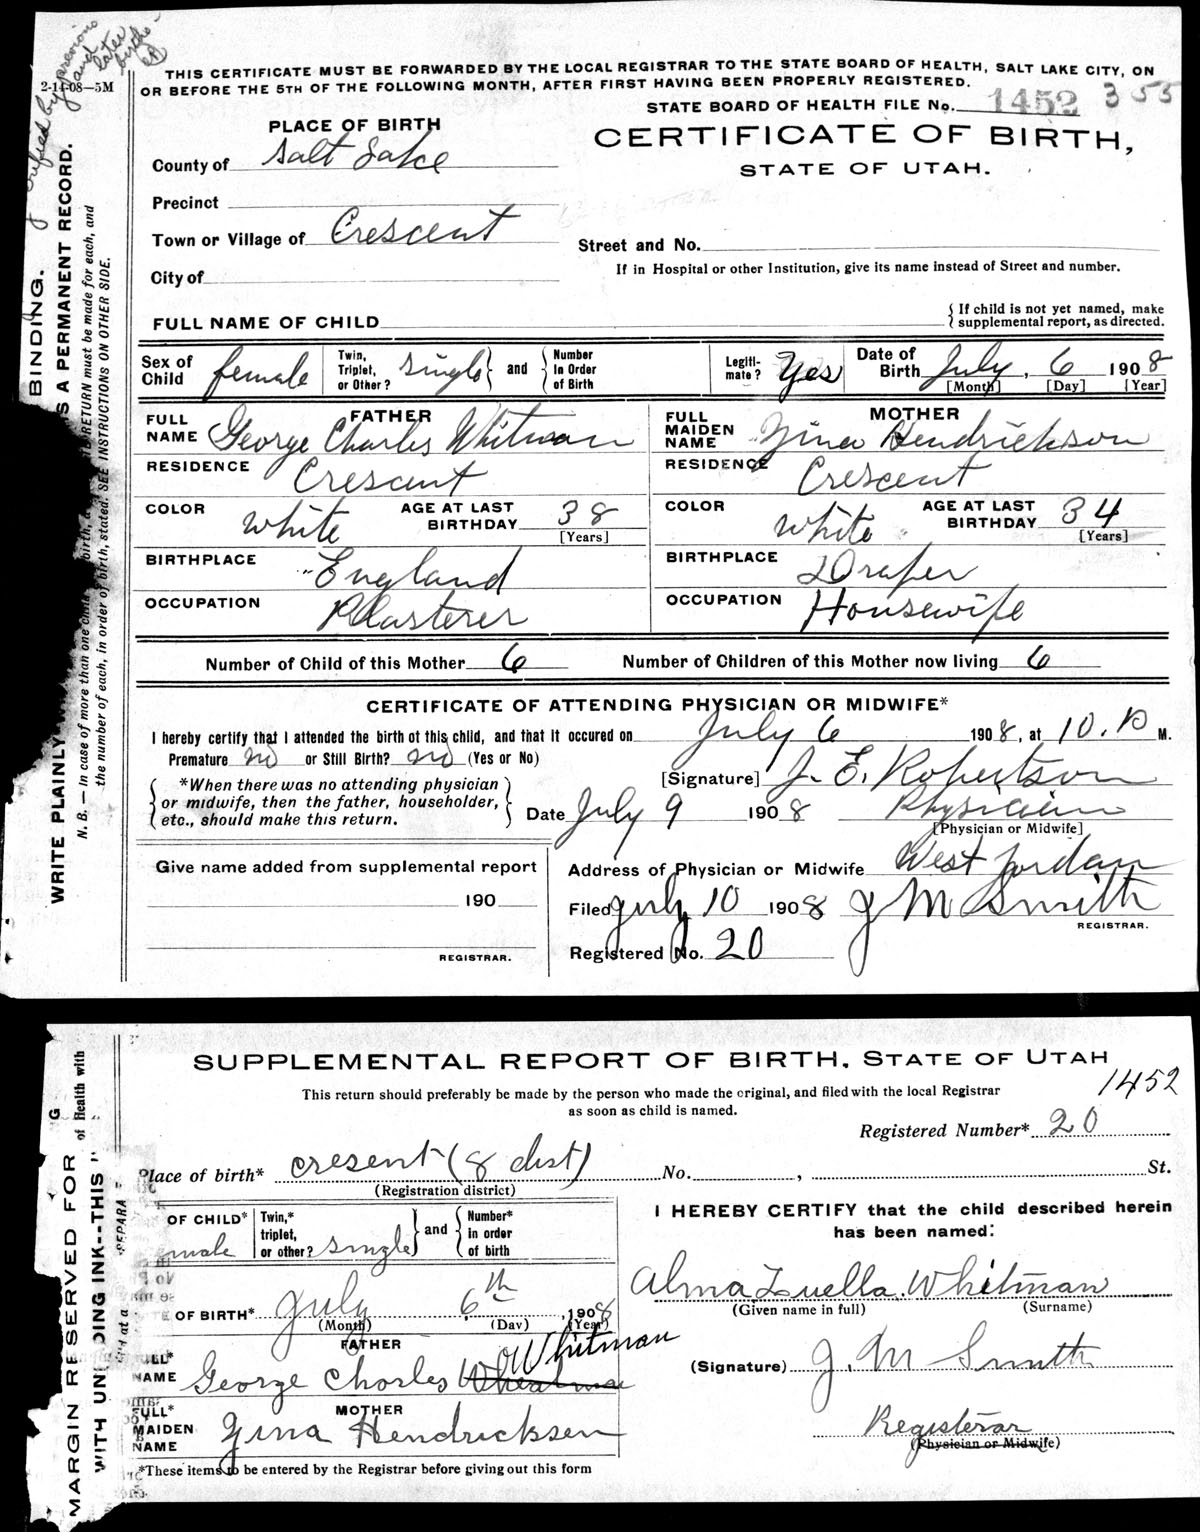 previous
and
later
births
2-14-08—5M
THIS CERTIFICATE MUST BE FORWARDED BY THE LOCAL REGISTRAR TO THE STATE BOARD OF HEALTH, SALT LAKE CITY, ON
OR BEFORE THE 5TH OF THE FOLLOWING MONTH, AFTER FIRST HAVING BEEN PROPERLY REGISTERED.
STATE BOARD OF HEALTH FILE No. 1452 355
PLACE OF BIRTH
CERTIFICATE OF BIRTH,
STATE OF UTAH.
County of Salt Lake
Precinct
Town or Village of Crescent
Street and No.
City of
If in Hospital or other Institution, give its name instead of Street and number.
FULL NAME OF CHILD
{ If child is not yet named, make
supplemental report, as directed.
Sex of Child female
Twin, Triplet, or Other? single } and { Number In Order of Birth
Legiti-mate? Yes
Date of Birth July, 6 1908
[Month] [Day] [Year]
FATHER
FULL NAME George Charles Whitman
MOTHER
FULL MAIDEN NAME Zina Hendrickson
RESIDENCE Crescent
RESIDENCE Crescent
COLOR white AGE AT LAST BIRTHDAY 38 [Years]
COLOR white AGE AT LAST BIRTHDAY 34 [Years]
BIRTHPLACE England
BIRTHPLACE Draper
OCCUPATION Plasterer
OCCUPATION Housewife
Number of Child of this Mother 6 Number of Children of this Mother now living 6
CERTIFICATE OF ATTENDING PHYSICIAN OR MIDWIFE*
I hereby certify that I attended the birth of this child, and that it occured on July 6 1908, at 10. P M.
Premature no or Still Birth? no (Yes or No)
[Signature] J. E. Robertson
{ *When there was no attending physician
or midwife, then the father, householder,
etc., should make this return. }
Date July 9 1908 Physician
[Physician or Midwife]
Give name added from supplemental report
Address of Physician or Midwife West Jordan
190
Filed July 10 1908 J M Smith
REGISTRAR.
REGISTRAR.
Registered No. 20
BINDING.
WRITE PLAINLY
IS A PERMANENT RECORD.
N. B.—In case of more than one child
birth, a
RETURN must be made for each, and
the number of each, in order of birth, stated. SEE INSTRUCTIONS ON OTHER SIDE.
SUPPLEMENTAL REPORT OF BIRTH, STATE OF UTAH
1452
This return should preferably be made by the person who made the original, and filed with the local Registrar
as soon as child is named.
Registered Number* 20
Place of birth* cresent (8 dist) No. , St.
(Registration district)
OF CHILD* male
Twin,* triplet, or other? single } and { Number* in order of birth
I HEREBY CERTIFY that the child described herein
has been named:
Alma Luella Whitman
(Given name in full) (Surname)
OF BIRTH* July 6th, 1908
(Month) (Day) (Year)
FATHER
NAME George Charles Whitman
(Signature) J. M Smith
MOTHER
FULL* MAIDEN NAME Zina Hendricksen
Registerar
(Physician or Midwife)
*These items to be entered by the Registrar before giving out this form
MARGIN RESERVED FOR
of Health with
WITH UN
DING INK--THIS
SEPARA